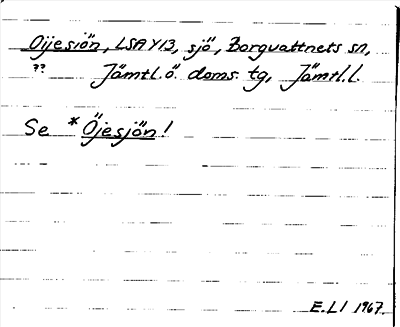 Oijesiön, LSA Y13, sjö, Borgvattnets sn,
?? Jämtl. ö. doms. tg, Jämtl.l.
Se * Öjesjön!
E.LI 1967